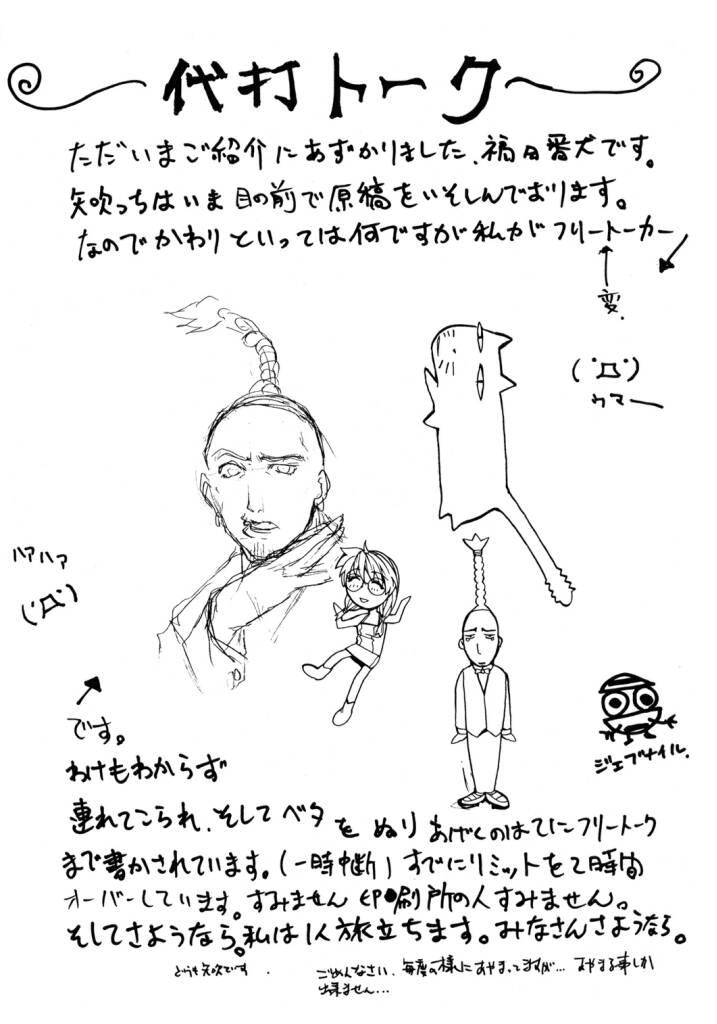 代打トーク
ただいまご紹介にあずかりました、福日番犬です。
矢吹っちはいま目の前で原稿をいそしんでおります。
なのでかわりといっては何ですが私がフリートーカー
変.
(゜Д゜)
ウマー
ハアハア
(゜Д゜)
です。
わけもわからず
連れてこられ、そしてベタをぬりあげくのはてにフリートーク
まで書かされています。(一時中断)すでにリミットを2時間
オーバーしています。すみません印刷所の人すみません。
そしてさようなら。私は1人旅立ちます。みなさんさようなら。
ジェブナイル.
どうも矢吹です.
ごめんなさい.毎度の様にあやまってますが…あやまる事しか
出来ません…